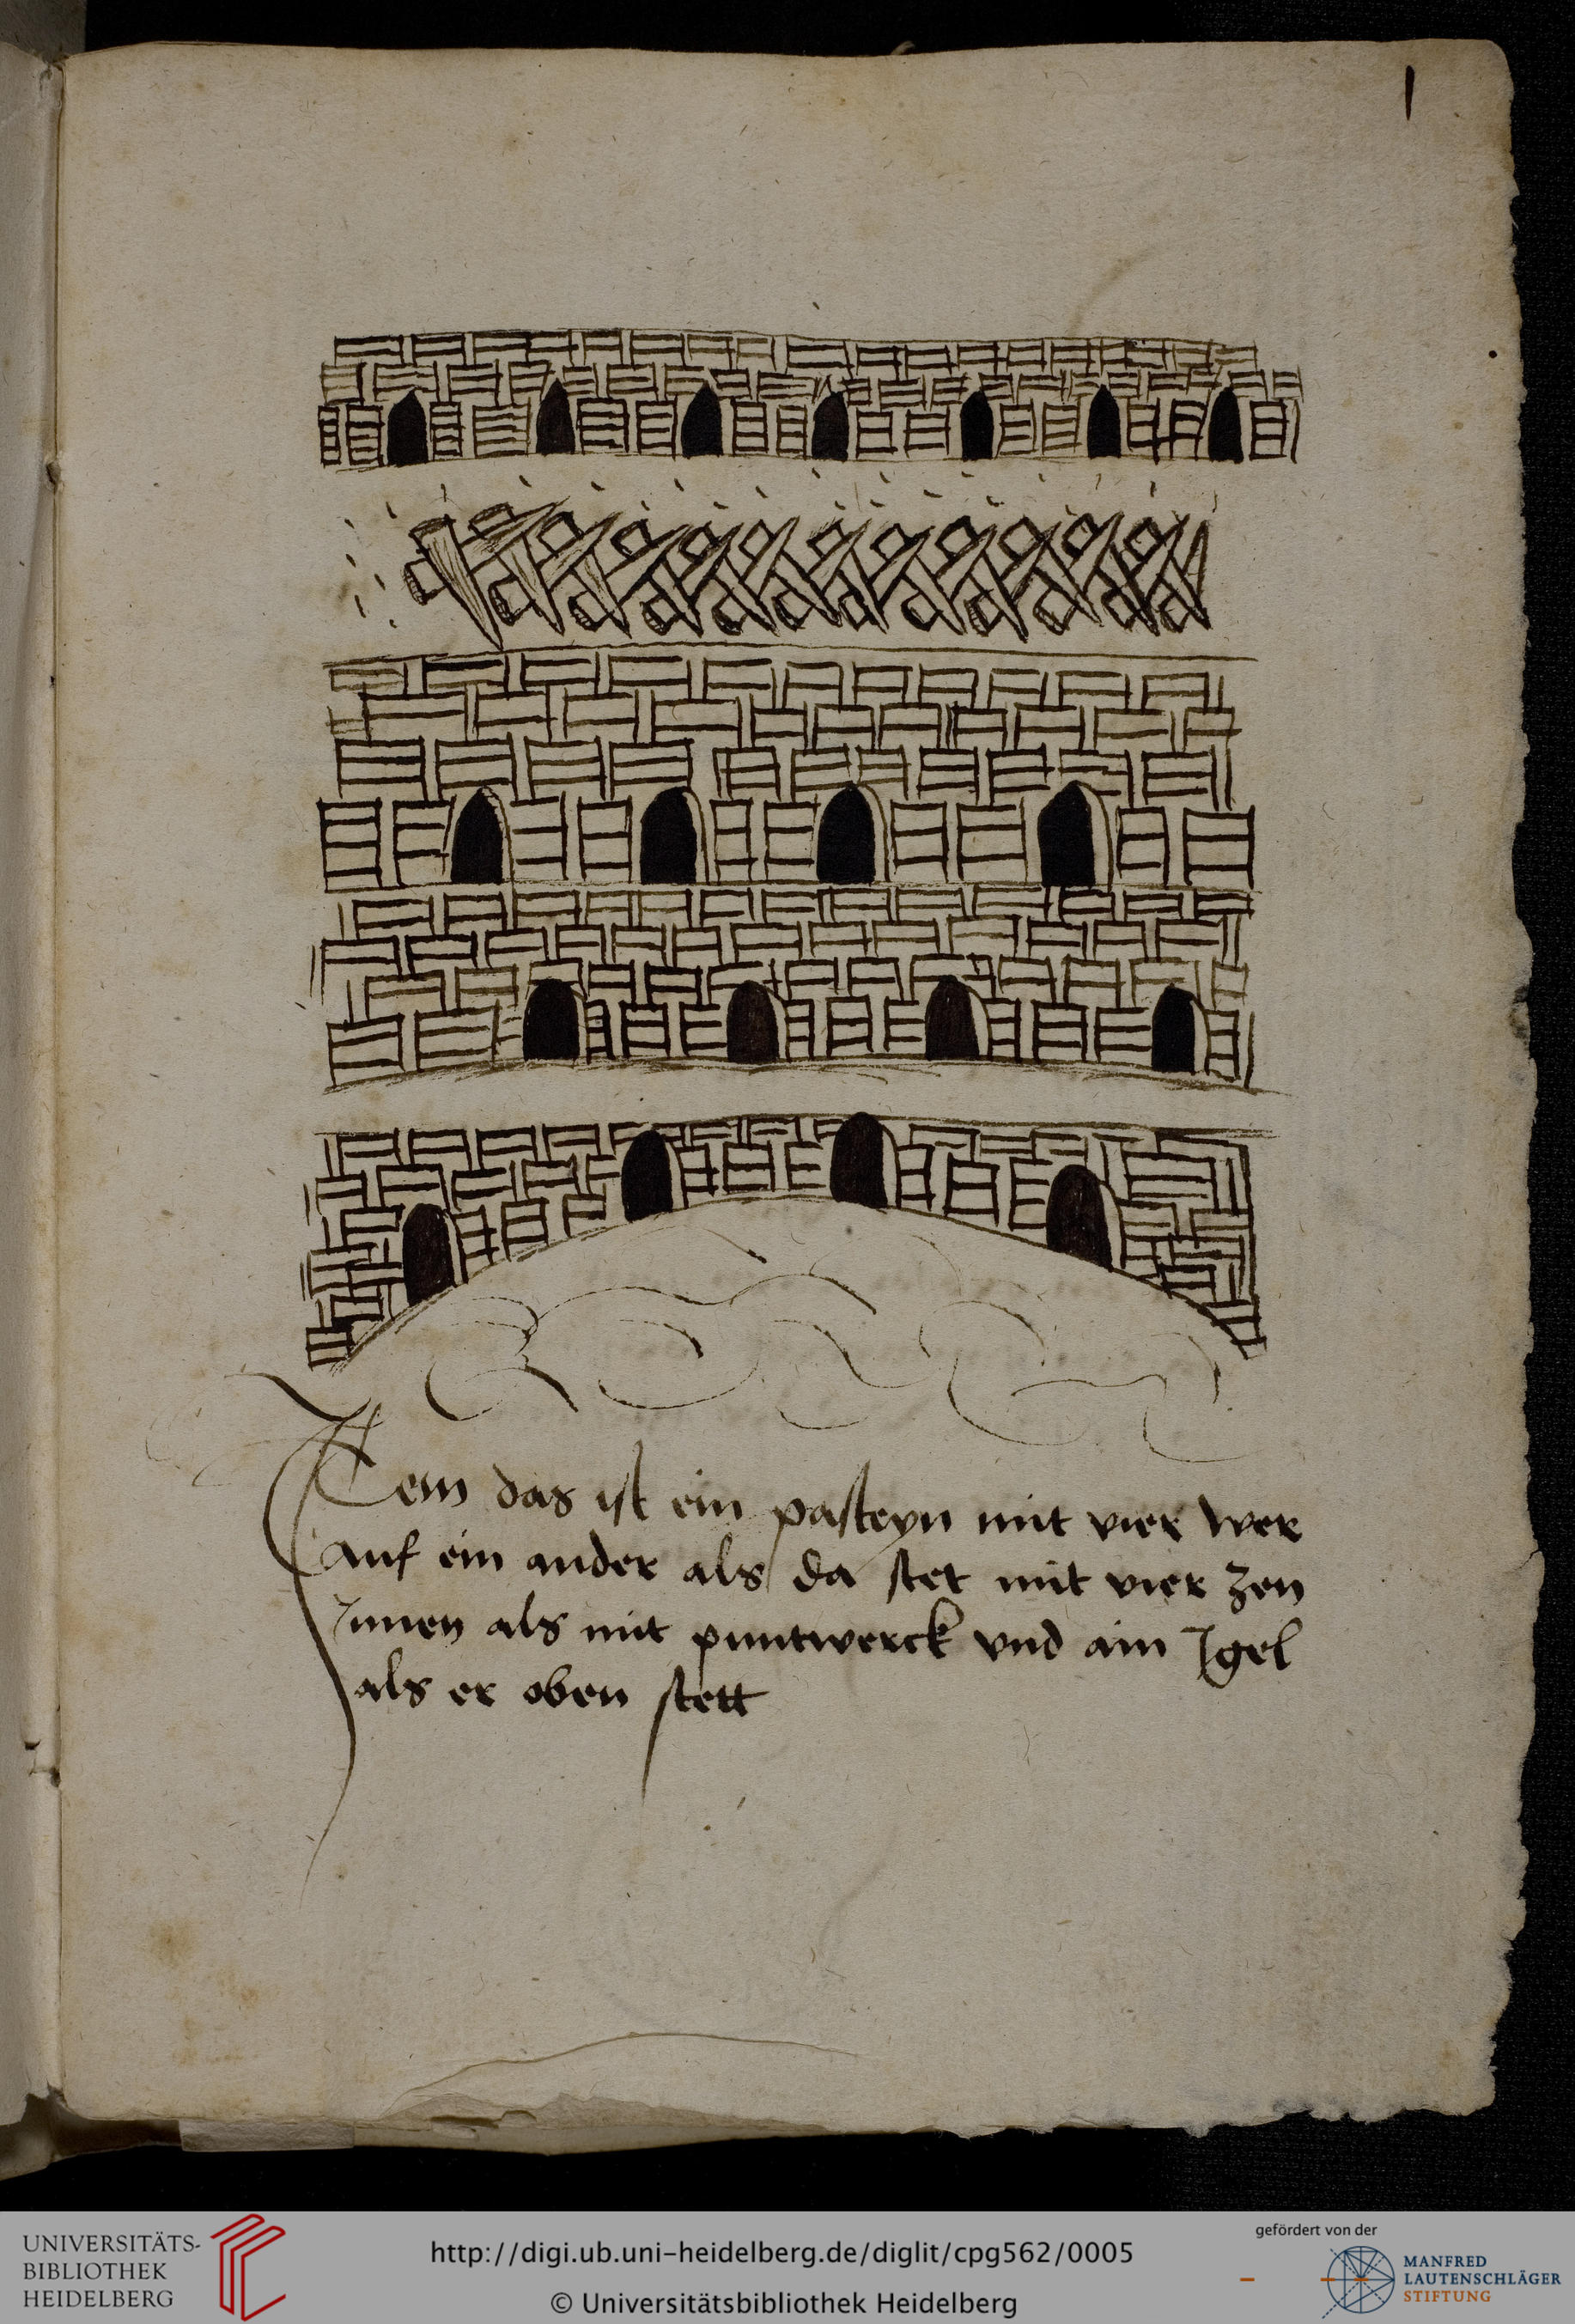 1
Item das ist ein pasteyn mit vier wer
auf ein ander als da stet mit vier zen
Innen als mit puntwerck vnd ain Igel
als er oben stett
UNIVERSITÄTS-
BIBLIOTHEK
HEIDELBERG
http://digi.ub.uni-heidelberg.de/diglit/cpg562/0005
© Universitätsbibliothek Heidelberg
gefördert von der
MANFRED
LAUTENSCHLÄGER
STIFTUNG